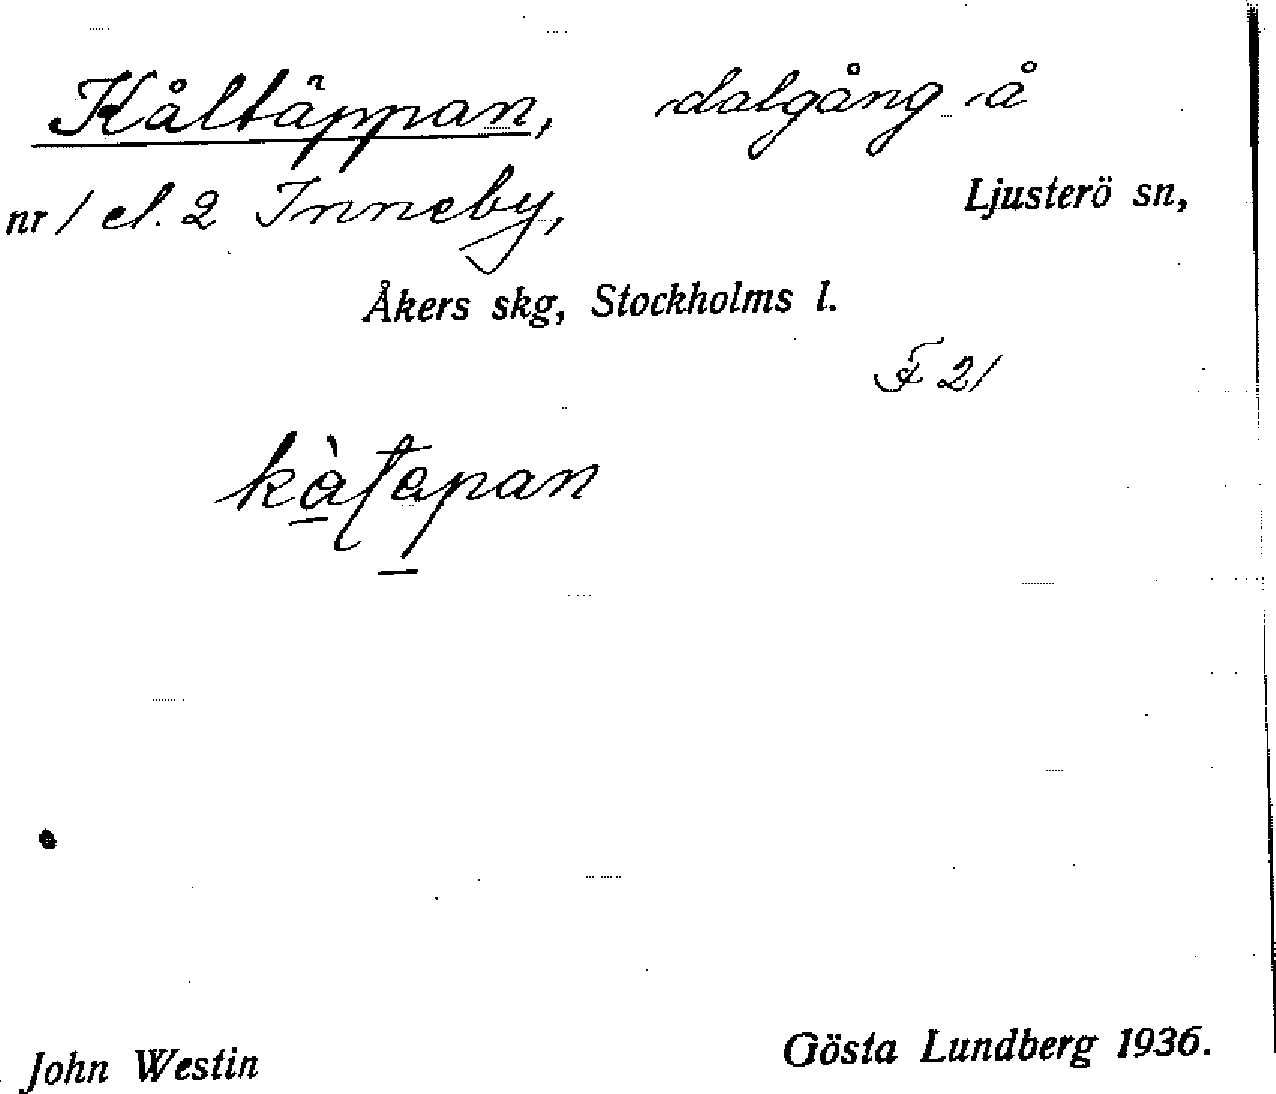 Kåltäppan, dalgång å
nr 1 el. 2 Inneby, Ljusterö sn,
Åkers skg, Stockholms l.
F 21
John Westin Gösta Lundberg 1936.